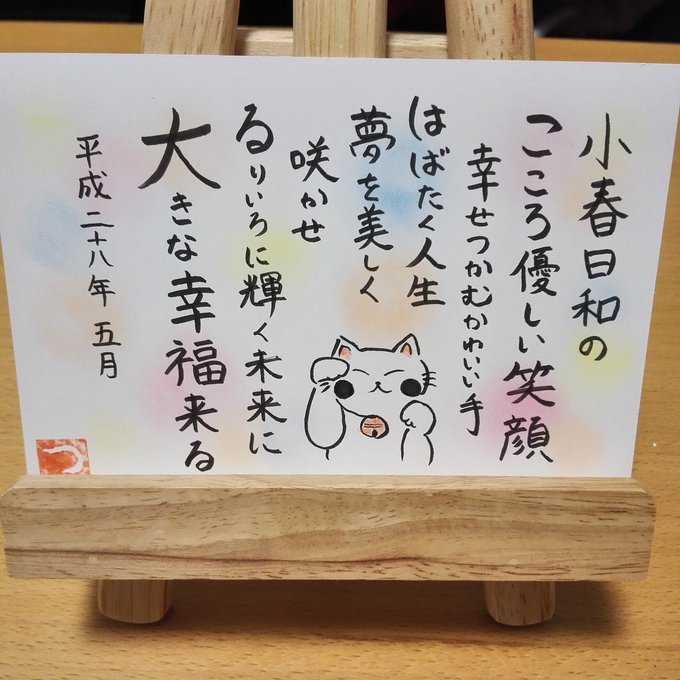 小春日和の
こころ優しい笑顔
幸せつかむかわいい手
はばたく人生
夢を美しく
咲かせ
るりいろに輝く未来に
大きな幸福来る
平成二十八年 五月
つ